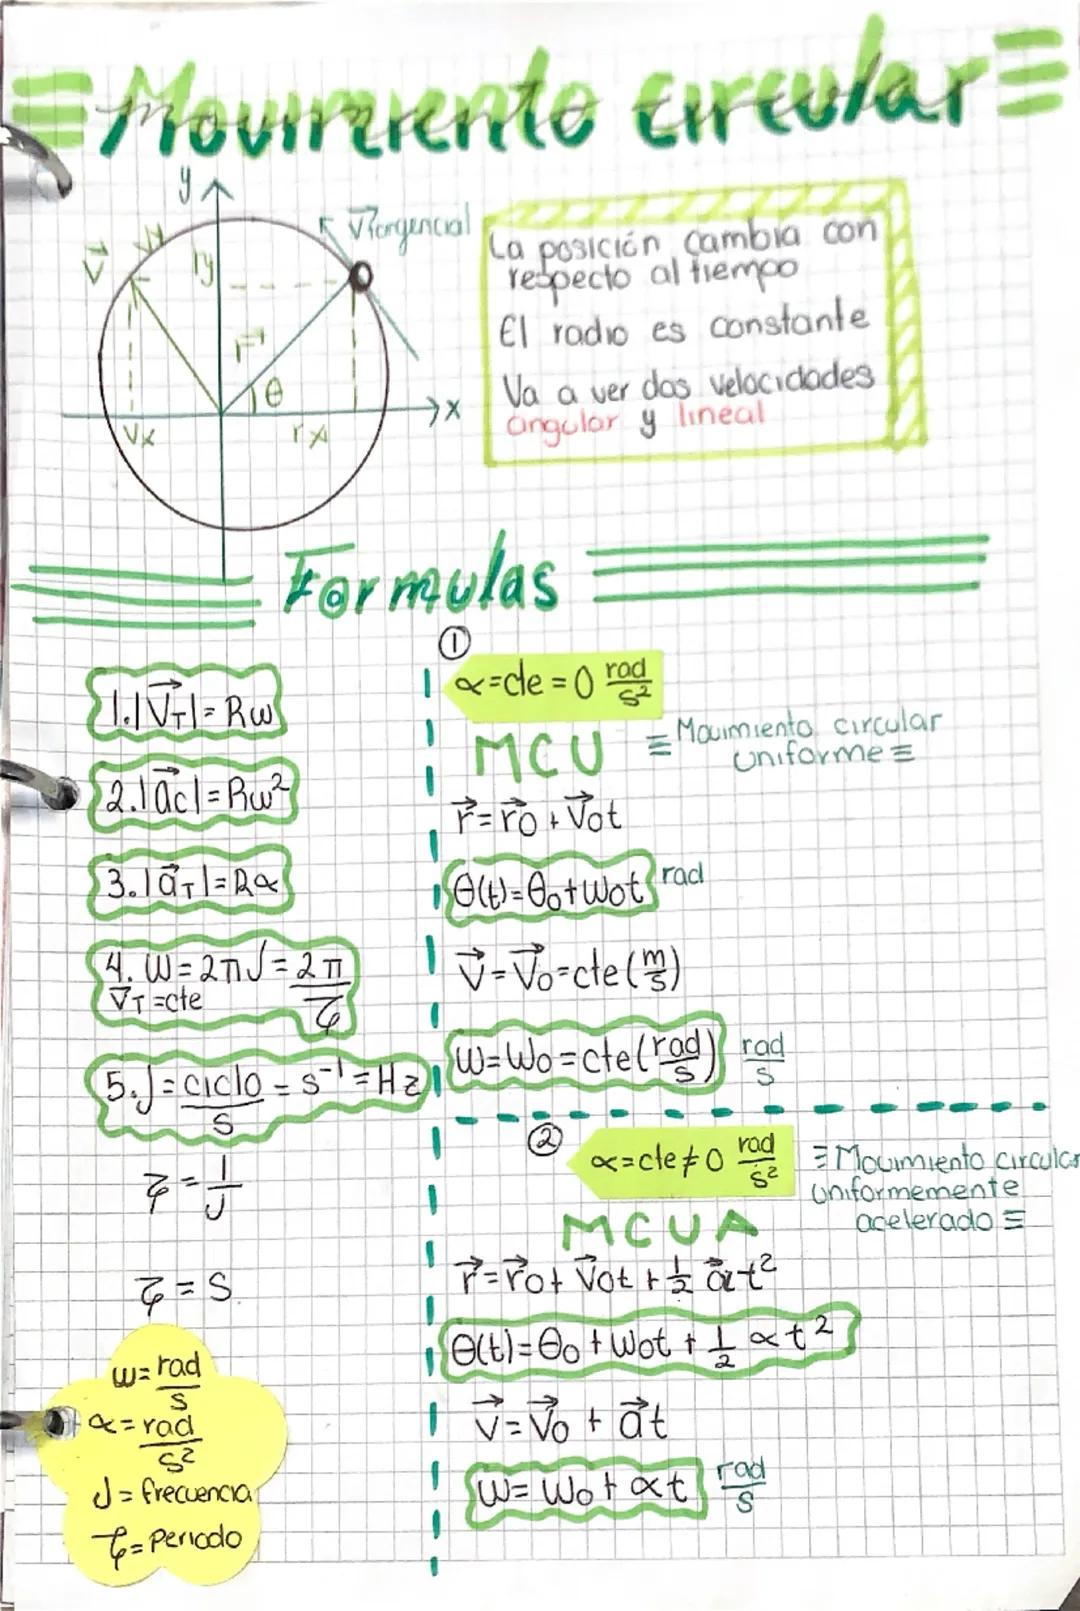 Movimiento circular
y
V⃗Tangencial
V⃗
Vy
ry
r⃗
θ
x
Vx
rx
La posición cambia con
respecto al tiempo
El radio es constante
Va a ver dos velocidades
angular y lineal
Formulas
1. |V⃗T| = Rω
2. |a⃗c| = Rω²
3. |a⃗T| = Rα
4. ω = 2πƒ = 2π/τ
V⃗T = cte
5. ƒ = ciclo/s = s⁻¹ = Hz
τ = 1/ƒ
τ = s
ω = rad/s
α = rad/s²
ƒ = frecuencia
τ = Periodo
①
α = cte = 0 rad/s²
MCU
≡ Movimiento circular
uniforme ≡
r⃗ = r⃗o + V⃗ot
θ(t) = θo + ωot rad
V⃗ = V⃗o = cte (m/s)
ω = ωo = cte (rad/s) rad/s
②
α = cte ≠ 0 rad/s²
≡ Movimiento circular
uniformemente
acelerado ≡
MCUA
r⃗ = r⃗o + V⃗ot + 1/2 a⃗t²
θ(t) = θo + ωot + 1/2 αt²
V⃗ = V⃗o + a⃗t
ω = ωo + αt rad/s